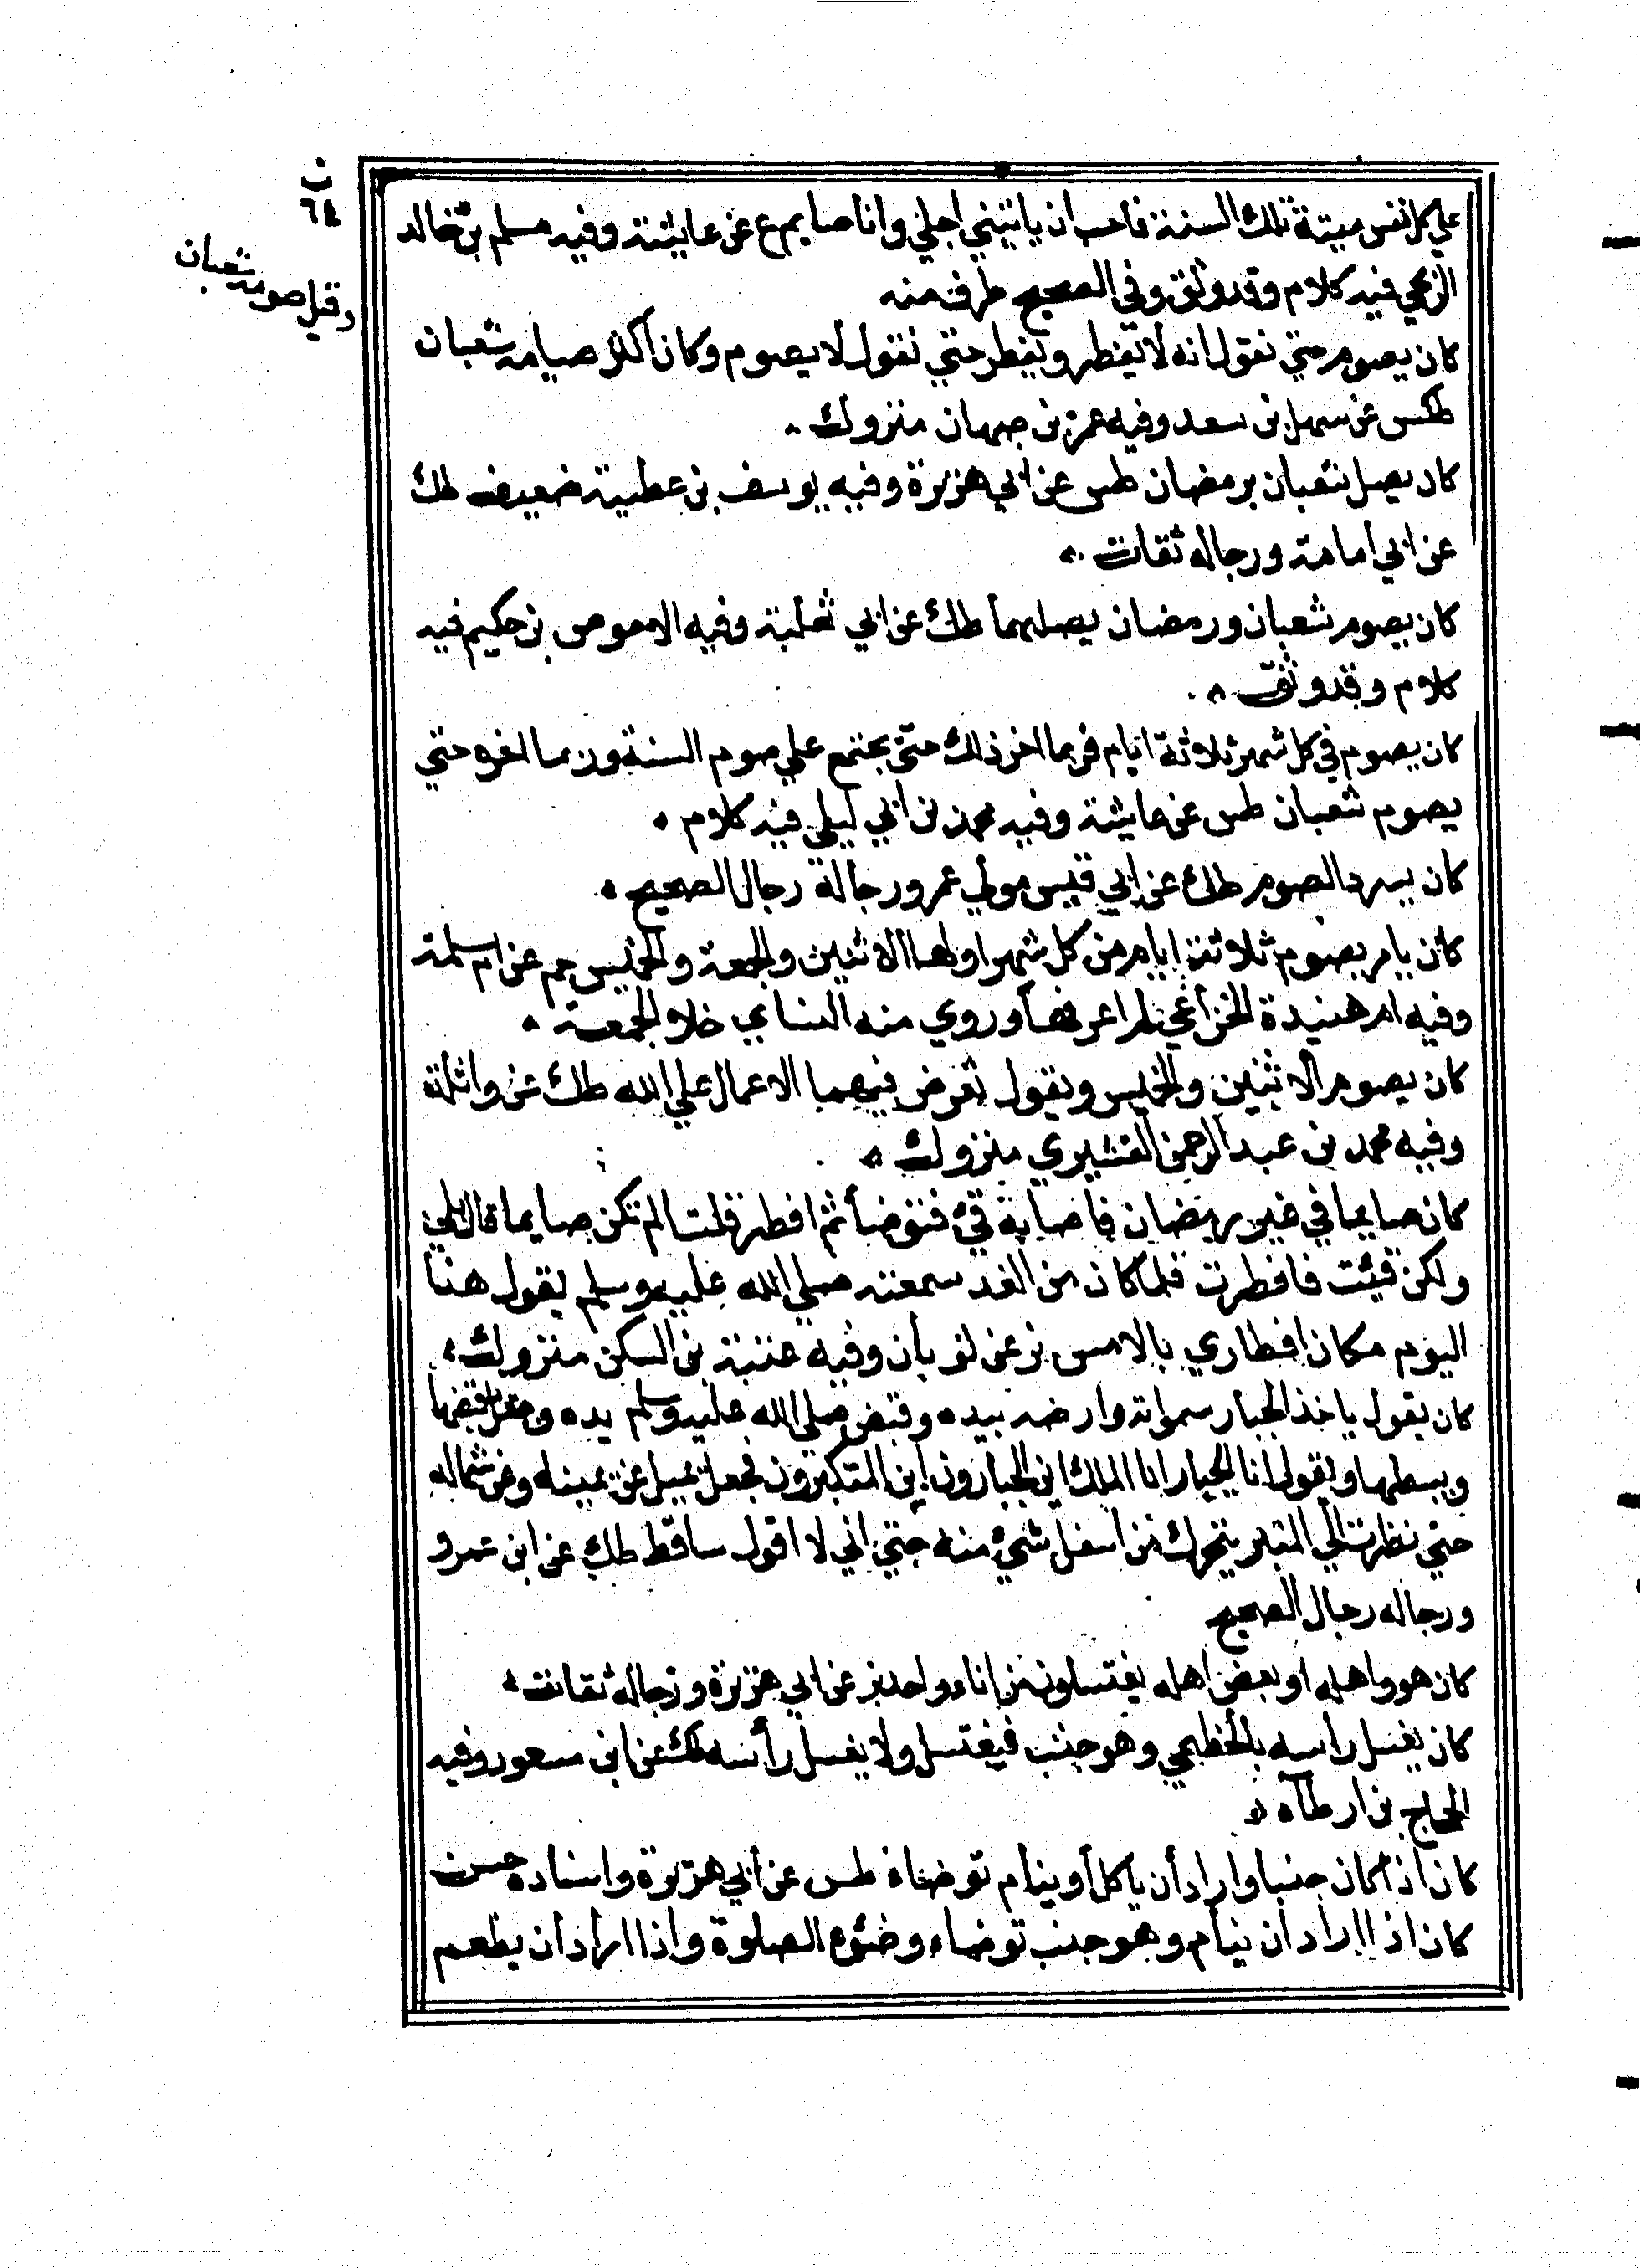 ن
٦٤
وقيل صومه شعبان
علي كل نفس ميتة تلك السنة فاحب ان ياتيني اجلي وانا صايم ع عن عايشة وفيه مسلم بن خالد
الزنجي فيه كلام وقد وثق وفي الصحيح طرف منه
كان يصوم حتي نقول انه لا يفطر ويفطر حتي نقول لا يصوم وكان اكثر صيامه شعبان
طكس عن سهل بن سعد وفيه عمر بن صهبان متروك
كان يصل شعبان برمضان طس عن ابي هريرة وفيه يوسف بن عطية ضعيف طك
عن ابي امامة ورجاله ثقات
كان يصوم شعبان ورمضان يصلهما طك عن ابي ثعلبة وفيه الاحوص بن حكيم فيه
كلام وقد وثق
كان يصوم في كل شهر ثلاثة ايام فربما اخر ذلك حتي يجتمع علي صوم السنة وربما اخره حتي
يصوم شعبان طس عن عايشة وفيه محمد بن ابي ليلي فيه كلام
كان يسرد الصوم طك عن ابي قيس مولي عمرو رجاله رجال الصحيح
كان يامر بصوم ثلاثة ايام من كل شهر اولها الاثنين والجمعة والخميس حم عن ام سلمة
وفيه ام هنيدة الخزاعي لم اعرفها وروي منه النسايي خلا الجمعة
كان يصوم الاثنين والخميس ويقول تعرض فيهما الاعمال علي الله طك عن واثلة
وفيه محمد بن عبد الرحمن القشيري متروك
كان صايما في غير رمضان فاصابه قئ فتوضأ ثم افطر فقلت الم تكن صايما قال بلي
ولكن قيئت فافطرت فلما كان من الغد سمعته صلي الله عليه وسلم يقول هذا
اليوم مكان افطاري بالامس بز عن ثوبان وفيه عتبة بن السكن متروك
كان يقول ياخذ الجبار سمواته وارضه بيده وقبض صلي الله عليه وسلم يده وجعل يقبضها
ويبسطها ويقول انا الجبار انا الملك اين الجبارون اين المتكبرون فجعل يميل عن يمينه وعن شماله
حتي نظرت الي المنبر يتحرك من اسفل شئ منه حتي اني لا اقول ساقط طك عن ابن عمرو
ورجاله رجال الصحيح
كان هو واهله او بعض اهله يغتسلون من اناء واحد بز عن ابي هريرة ورجاله ثقات
كان يغسل راسه بالخطمي وهو جنب فيغتسل ولا يغسل رأسه طك عن ابن مسعود وفيه
الحجاج بن ارطاه
كان اذا كان جنبا واراد أن ياكل أو ينام توضاء طس عن ابي هريرة واسناده حسن
كان اذا اراد ان ينام وهو جنب توضاء وضوء الصلوة واذا اراد ان يطعم